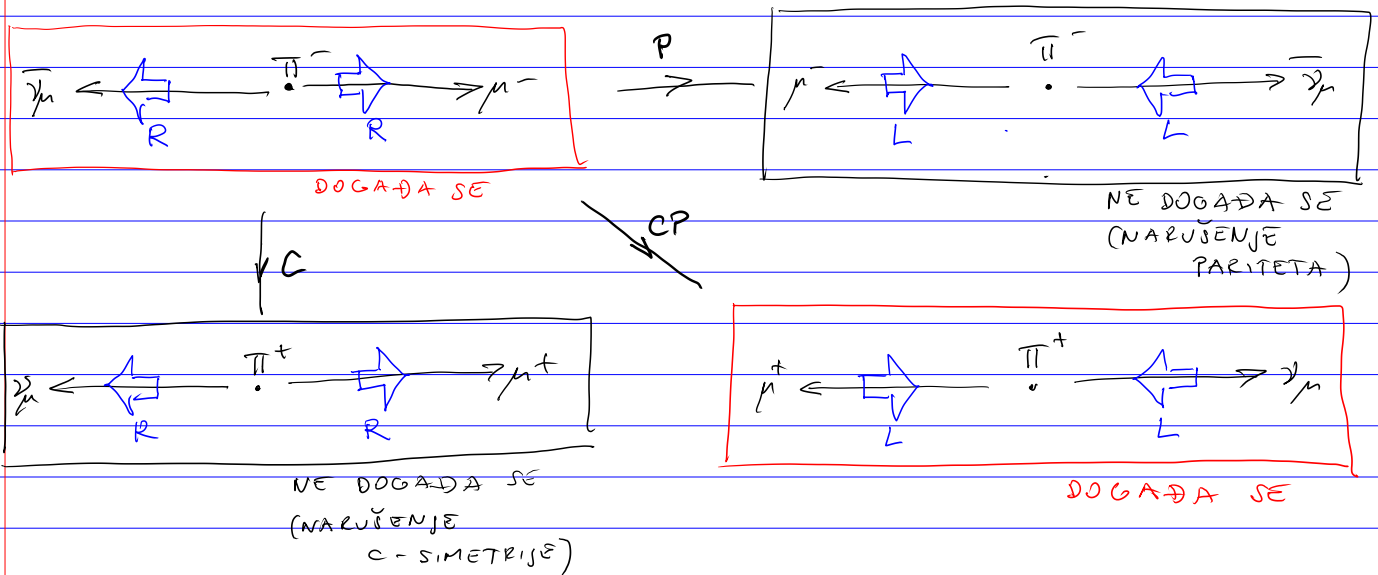 ν̄μ π⁻ μ⁻
R R
DOGAĐA SE
P
μ⁻ π⁻ ν̄μ
L L
NE DOGAĐA SE
(NARUŠENJE
PARITETA)
C
CP
νμ π⁺ μ⁺
R R
NE DOGAĐA SE
(NARUŠENJE
C - SIMETRIJE)
μ⁺ π⁺ νμ
L L
DOGAĐA SE